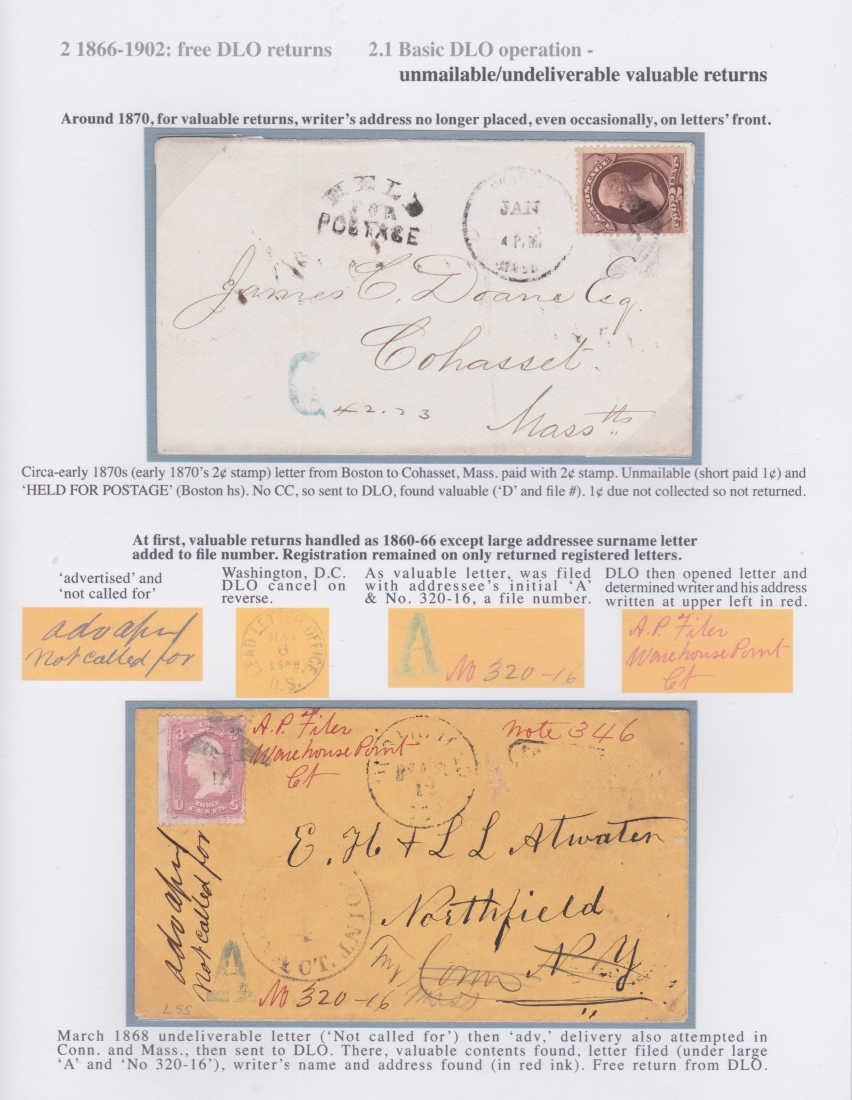 2 1866-1902: free DLO returns 2.1 Basic DLO operation -
unmailable/undeliverable valuable returns
Around 1870, for valuable returns, writer's address no longer placed, even occasionally, on letters' front.
HELD
FOR
POSTAGE
JAN
4 P.M.
MASS
James C. Doane Esq.
Cohasset.
Mass ths
42.23
Circa-early 1870s (early 1870's 2¢ stamp) letter from Boston to Cohasset, Mass. paid with 2¢ stamp. Unmailable (short paid 1¢) and
'HELD FOR POSTAGE' (Boston hs). No CC, so sent to DLO, found valuable ('D' and file #). 1¢ due not collected so not returned.
At first, valuable returns handled as 1860-66 except large addressee surname letter
added to file number. Registration remained on only returned registered letters.
'advertised' and
'not called for'
Washington, D.C.
DLO cancel on
reverse.
As valuable letter, was filed
with addressee's initial 'A'
& No. 320-16, a file number.
DLO then opened letter and
determined writer and his address
written at upper left in red.
adv apl
Not called for
DEAD LETTER OFFICE
MAY
6
1868
U.S.
A
No 320-16
A.P. Filer
Warehouse Point
Ct
3 3
U THREE CENTS S
A.P. Filer
Warehouse Point
Ct
note 346
E. H & L L Atwater
Northfield
N.Y
Try Conn
Mass
adv apl
Not called for
CT. JNIO
A
No 320-16
LSS
March 1868 undeliverable letter ('Not called for') then 'adv,' delivery also attempted in
Conn. and Mass., then sent to DLO. There, valuable contents found, letter filed (under large
'A' and 'No 320-16'), writer's name and address found (in red ink). Free return from DLO.